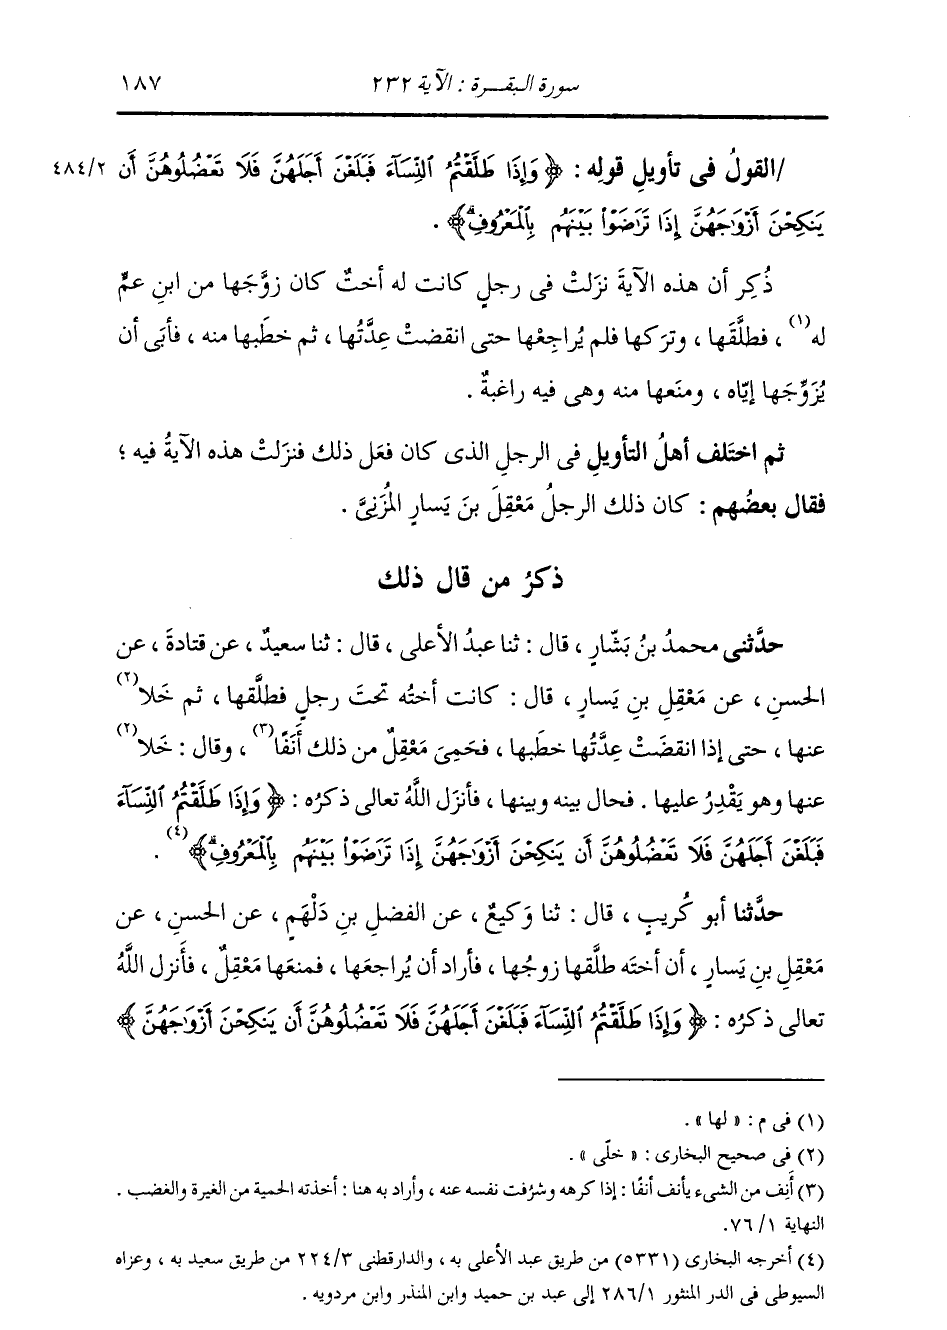 سورة البقـرة : الآية ٢٣٢ ١٨٧
/القولُ فى تأويلِ قولِه : ﴿ وَإِذَا طَلَّقْتُمُ ٱلنِّسَآءَ فَبَلَغْنَ أَجَلَهُنَّ فَلَا تَعْضُلُوهُنَّ أَن ٤٨٤/٢
يَنكِحْنَ أَزْوَٰجَهُنَّ إِذَا تَرَٰضَوْا۟ بَيْنَهُم بِٱلْمَعْرُوفِۗ ﴾ .
ذُكِر أن هذه الآيةَ نزَلتْ فى رجلٍ كانت له أختٌ كان زوَّجَها من ابنِ عمٍّ
له(١) ، فطلَّقَها ، وترَكها فلم يُراجِعْها حتى انقضتْ عِدَّتُها ، ثم خطَبها منه ، فأبَى أن
يُزَوِّجَها إيّاه ، ومنَعها منه وهى فيه راغبةٌ .
ثم اختَلف أهلُ التأويلِ فى الرجلِ الذى كان فعَل ذلك فنزَلتْ هذه الآيةُ فيه ؛
فقال بعضُهم : كان ذلك الرجلُ مَعْقِلَ بنَ يَسارٍ المُزَنِىَّ .
ذكرُ من قال ذلك
حدَّثنى محمدُ بنُ بَشّارٍ ، قال : ثنا عبدُ الأعلى ، قال : ثنا سعيدٌ ، عن قتادةَ ، عن
الحسنِ ، عن مَعْقِلِ بنِ يَسارٍ ، قال : كانت أختُه تحتَ رجلٍ فطلَّقها ، ثم خَلا(٢)
عنها ، حتى إذا انقضَتْ عِدَّتُها خطَبها ، فحَمِىَ مَعْقِلٌ من ذلك أَنَفًا(٣) ، وقال : خَلا(٢)
عنها وهو يَقْدِرُ عليها . فحال بينه وبينها ، فأنزَل اللَّهُ تعالى ذكرُه : ﴿ وَإِذَا طَلَّقْتُمُ ٱلنِّسَآءَ
فَبَلَغْنَ أَجَلَهُنَّ فَلَا تَعْضُلُوهُنَّ أَن يَنكِحْنَ أَزْوَٰجَهُنَّ إِذَا تَرَٰضَوْا۟ بَيْنَهُم بِٱلْمَعْرُوفِۗ ﴾(٤) .
حدَّثنا أبو كُريبٍ ، قال : ثنا وَكيعٌ ، عن الفضلِ بنِ دَلْهَمٍ ، عن الحسنِ ، عن
مَعْقِلِ بنِ يَسارٍ ، أن أختَه طلَّقها زوجُها ، فأراد أن يُراجعَها ، فمنعَها مَعْقِلٌ ، فأَنزل اللَّهُ
تعالى ذكرُه : ﴿ وَإِذَا طَلَّقْتُمُ ٱلنِّسَآءَ فَبَلَغْنَ أَجَلَهُنَّ فَلَا تَعْضُلُوهُنَّ أَن يَنكِحْنَ أَزْوَٰجَهُنَّ ﴾
(١) فى م : « لها » .
(٢) فى صحيح البخارى : « خلّى » .
(٣) أَنِف من الشىء يأنف أنفًا : إذا كرهه وشرُفت نفسه عنه ، وأراد به هنا : أخذته الحمية من الغيرة والغضب .
النهاية ١/ ٧٦.
(٤) أخرجه البخارى (٥٣٣١) من طريق عبد الأعلى به ، والدارقطنى ٢٢٤/٣ من طريق سعيد به ، وعزاه
السيوطى فى الدر المنثور ٢٨٦/١ إلى عبد بن حميد وابن المنذر وابن مردويه .